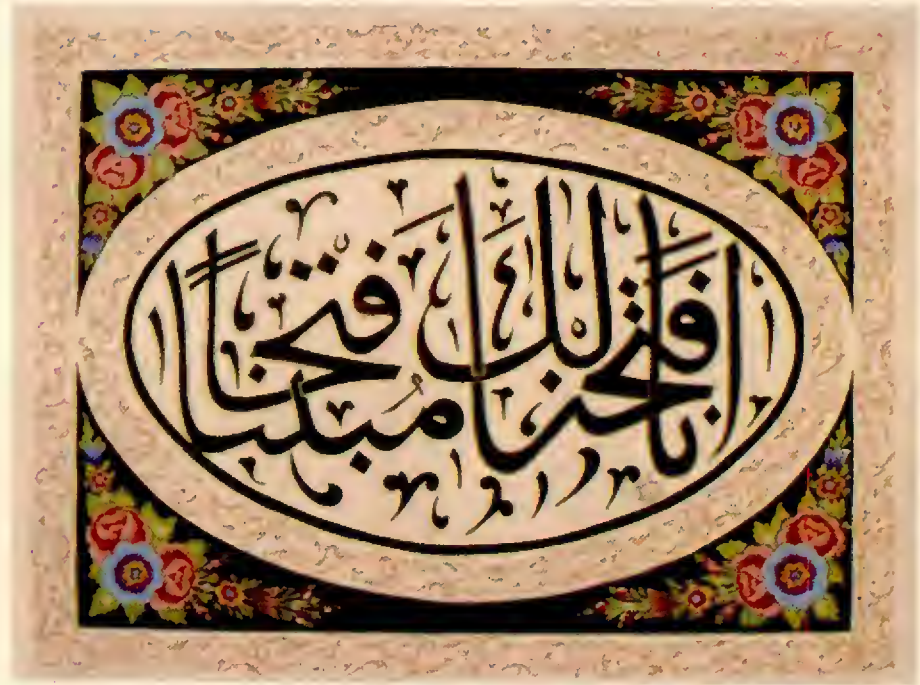 إنا فتحنا لك فتحاً مبيناً